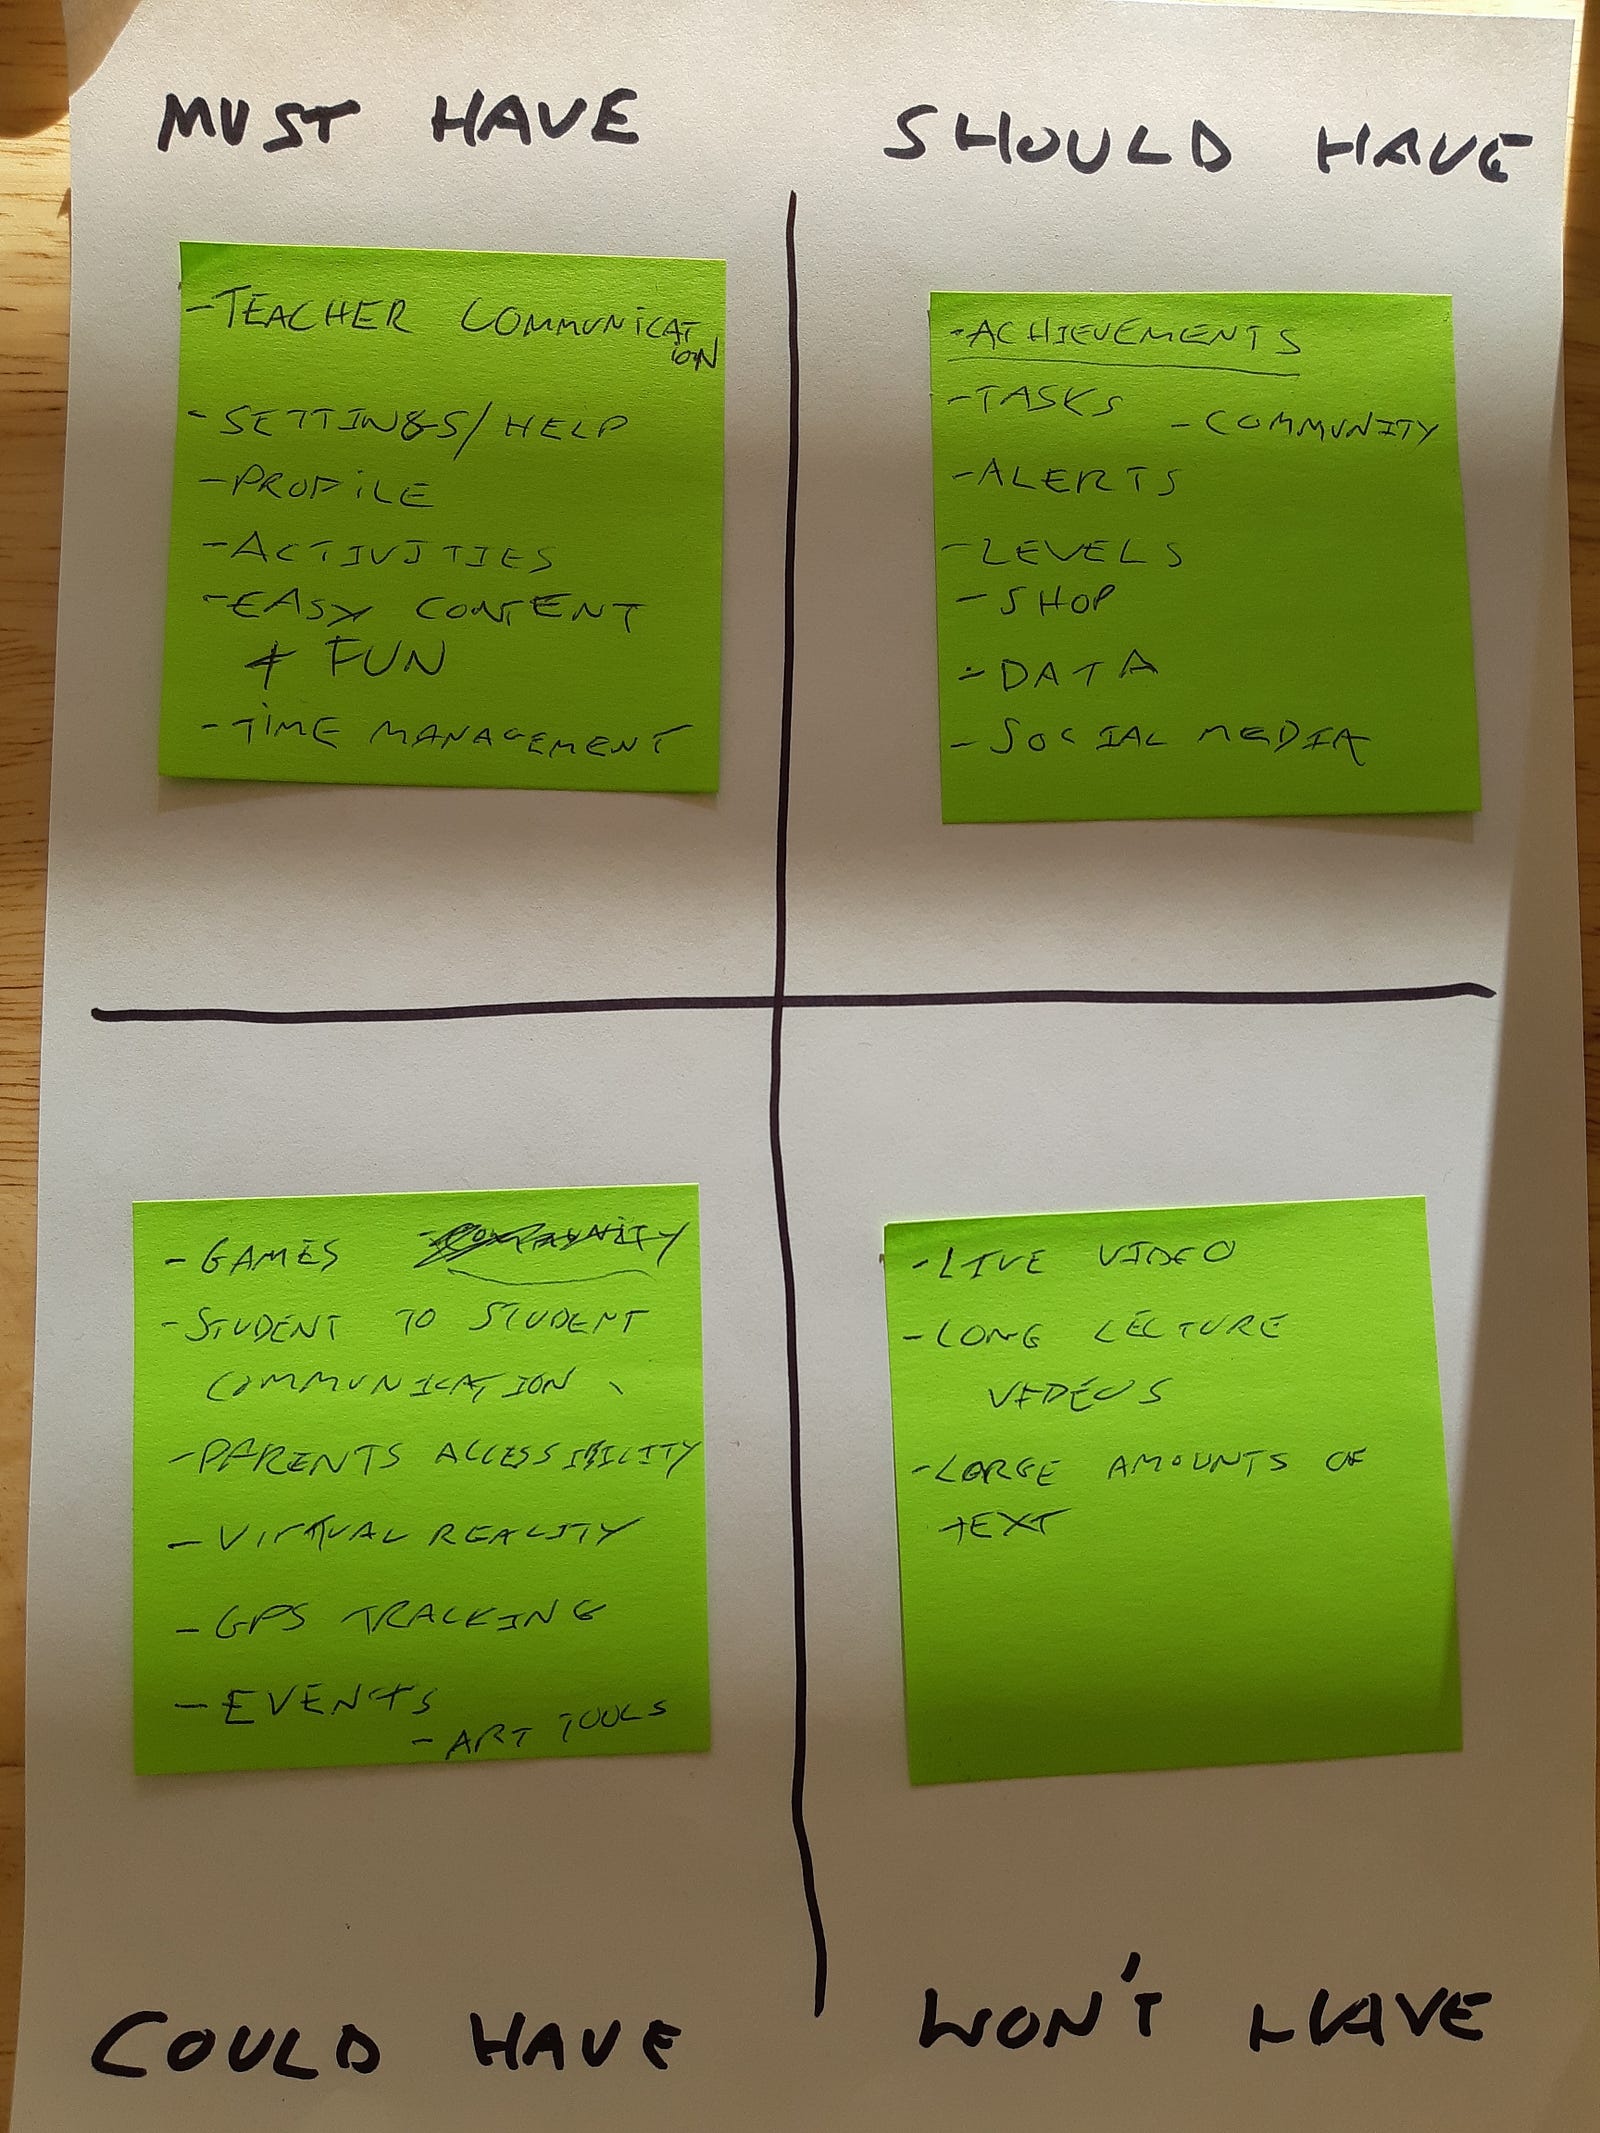 MUST HAVE
SHOULD HAVE
-TEACHER COMMUNICAT
ION
-SETTINGS/HELP
-PROFILE
-ACTIVITIES
-EASY CONTENT
& FUN
-TIME MANAGEMENT
-ACHIEVEMENTS
-TASKS
-COMMUNITY
-ALERTS
-LEVELS
-SHOP
-DATA
-SOCIAL MEDIA
-GAMES -COMMUNITY
-STUDENT TO STUDENT
COMMUNICATION
-PARENTS ACCESSIBILITY
-VIRTUAL REALITY
-GPS TRACKING
-EVENTS
-ART TOOLS
-LIVE VIDEO
-LONG LECTURE
VIDEOS
-LARGE AMOUNTS OF
TEXT
COULD HAVE
WON'T HAVE